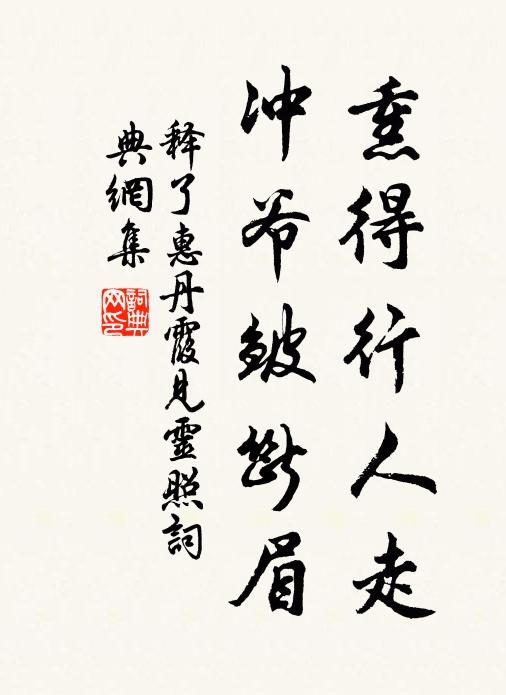 熏得行人走
冲爷皱斷眉
释了惠丹霞見靈照詞
典網集
詞典网印